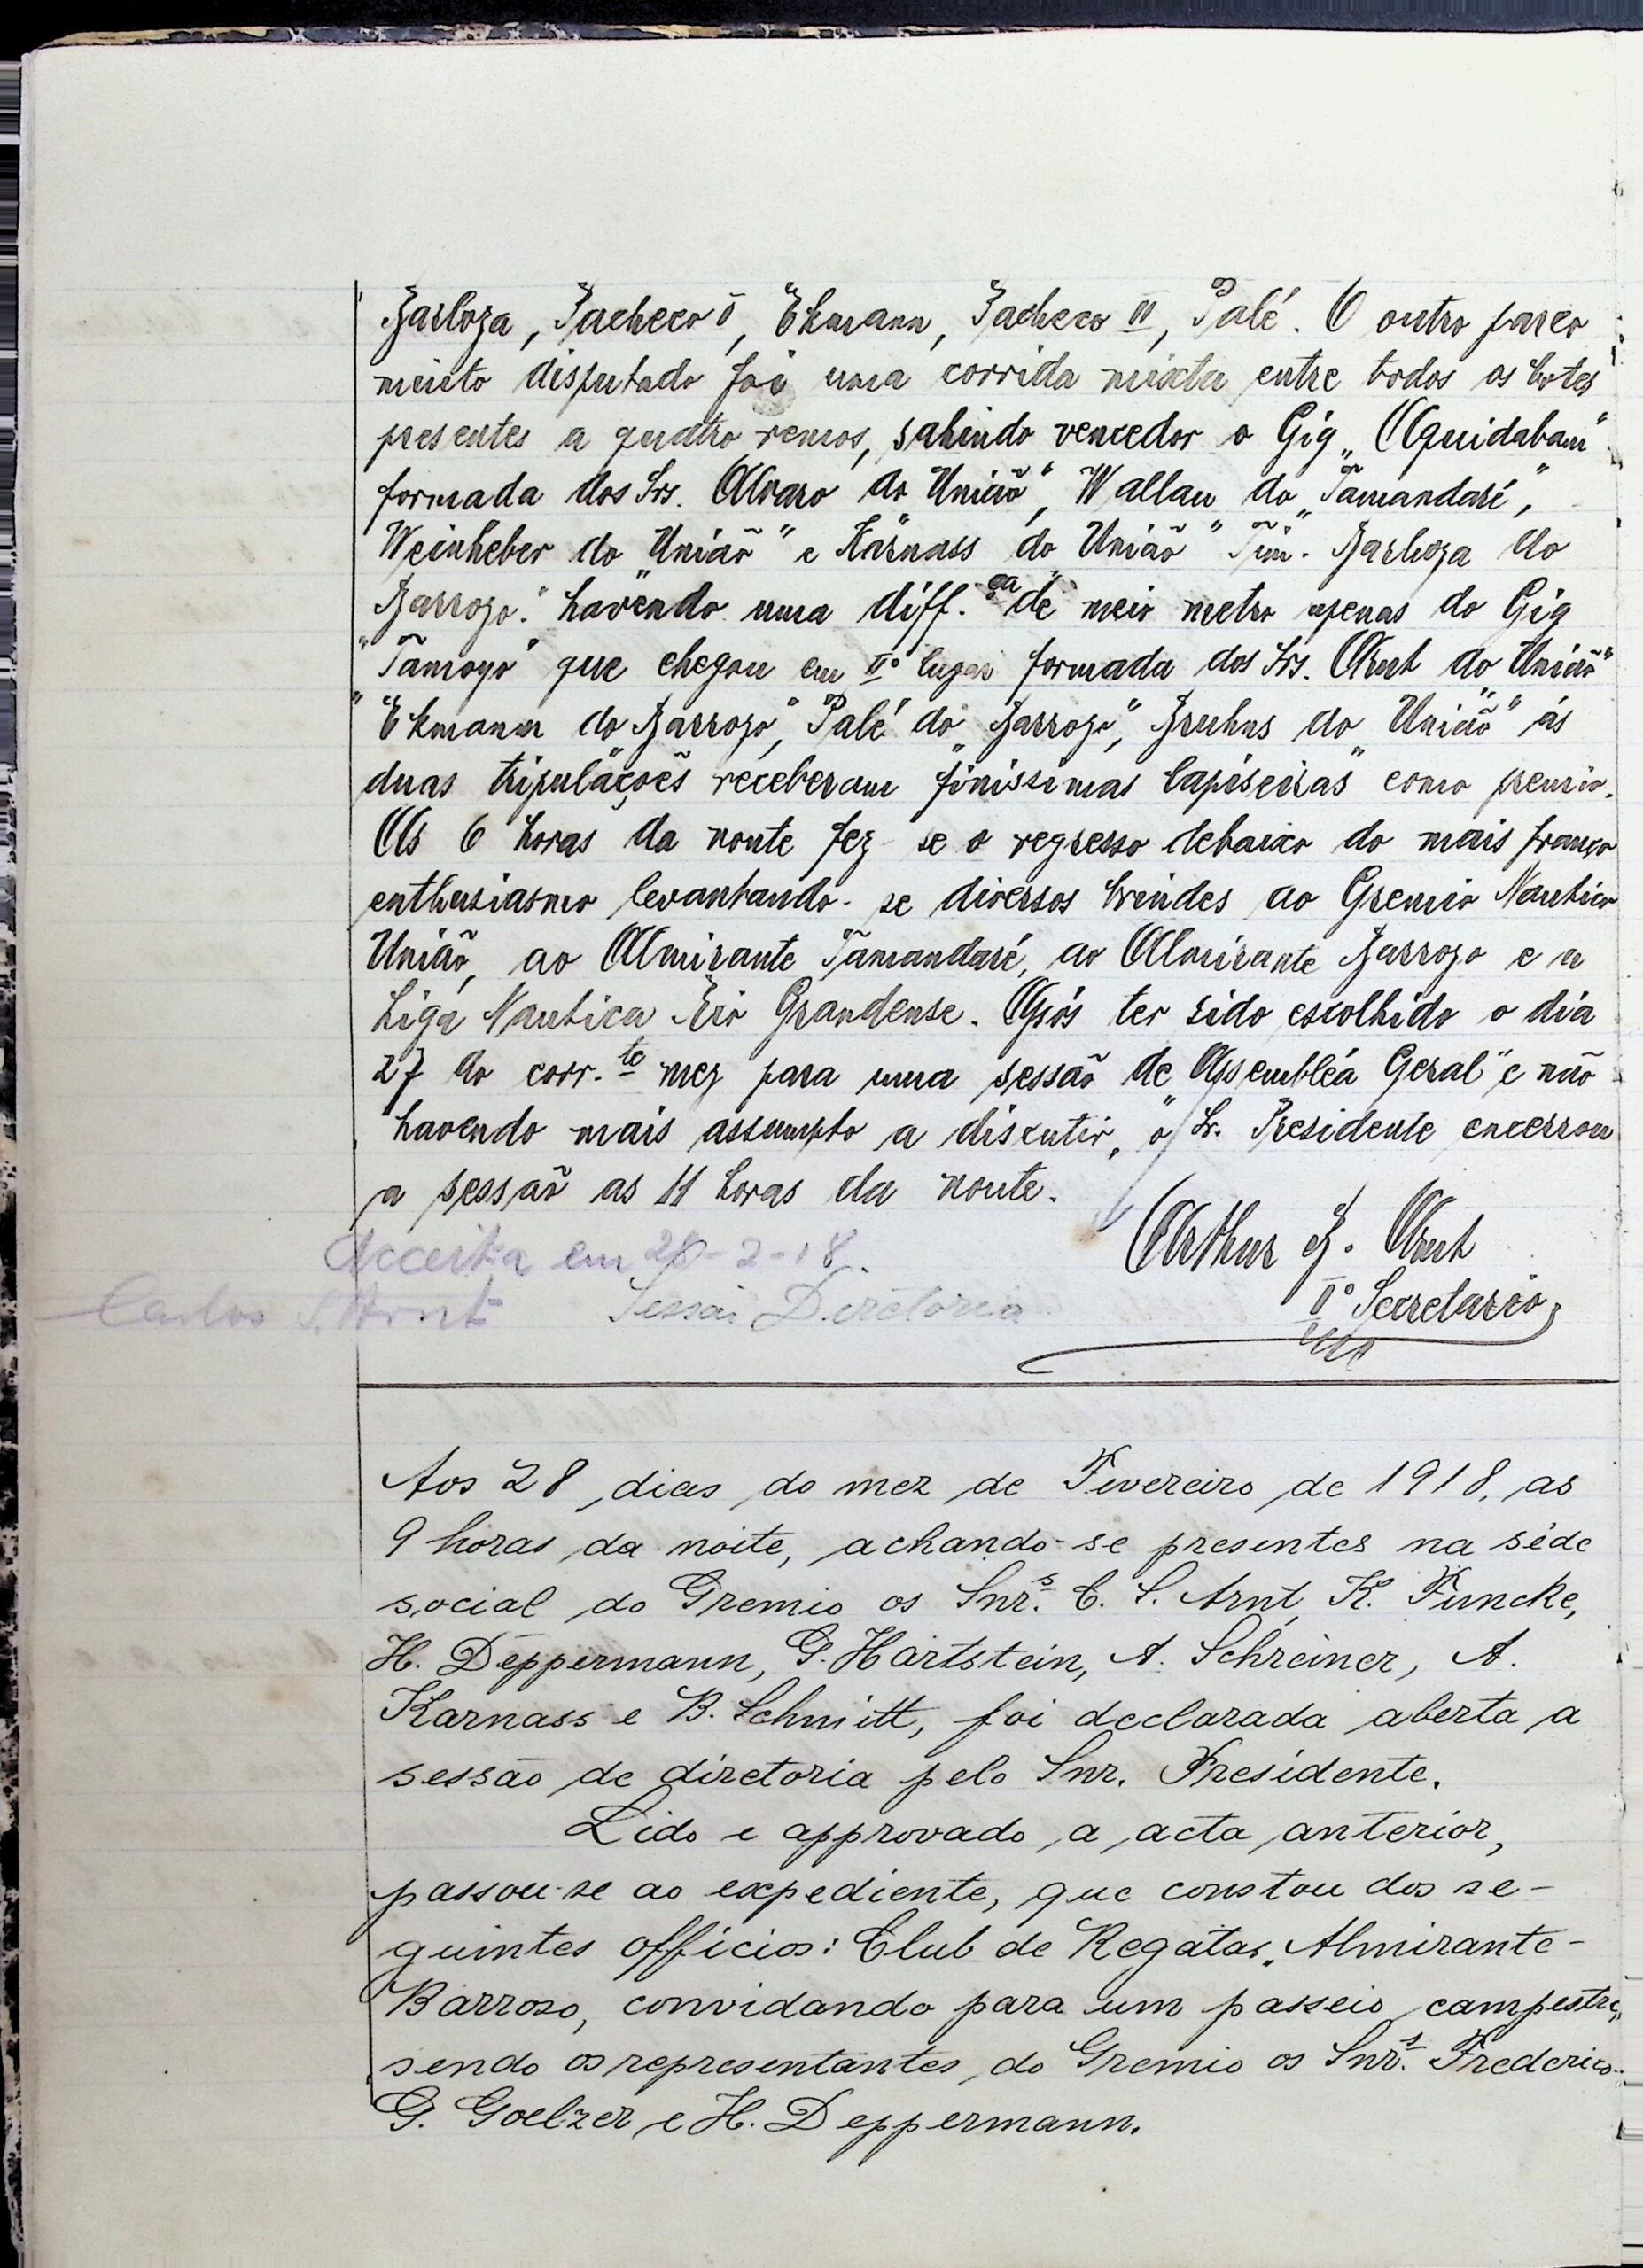 Barboza, Pacheco I, Ekmann, Pacheco II, Palé. O outro pareo
muito disputado foi uma corrida mixta entre todos os botes
presentes a quatro remos, sahindo vencedor o Gig „Aquidabam"
formada dos Srs. Alvaro do União", Wallau do „Tamandaré",
Weinheber do "União" e Karnass do "União" Tim. Barboza do
Barrozo." havendo uma diff.ça de meio metro apenas do Gig
"Tamoyo" que chegou em IIº lugar formada dos Srs. Arnt do União"
"Ekmann do Barrozo", Palé do Barrozo", Bruhns do "União" ás
duas tripulações receberam finissimas "lapiseiras" como premio.
As 6 horas da noute fez-se o regresso debaixo do mais franco
enthusiasmo levantando-se diversos brindes ao Gremio Nautico
União, ao Almirante Tamandaré, ao Almirante Barrozo e a
Liga Nautica Rio Grandense. Após ter sido escolhido o dia
27 do corr.te mez para uma sessão de "Assembléa Geral" e não
havendo mais assumpto a discutir, o Sr. Presidente encerrou
a sessão as 11 horas da noute.
Arthur B. Arnt
IIº Secretario
Acceita em 28-2-18.
Carlos S. Arnt Sessão Diretoria
Aos 28 dias do mez de Fevereiro de 1918, as
9 horas da noite, achando-se presentes na séde
social do Gremio os Snr.s C. S. Arnt, K. Funcke,
H. Deppermann, G. Hartstein, A. Schreiner, A.
Karnass e B. Schmitt, foi declarada aberta a
sessão de diretoria pelo Snr. Presidente.
Lido e approvado a acta anterior,
passou-se ao expediente, que constou dos se-
guintes officios: Club de Regatas „Almirante-
Barroso, convidando para um passeio campestre,
sendo os representantes do Gremio os Snr.s Frederico
G. Goelzer e H. Deppermann.